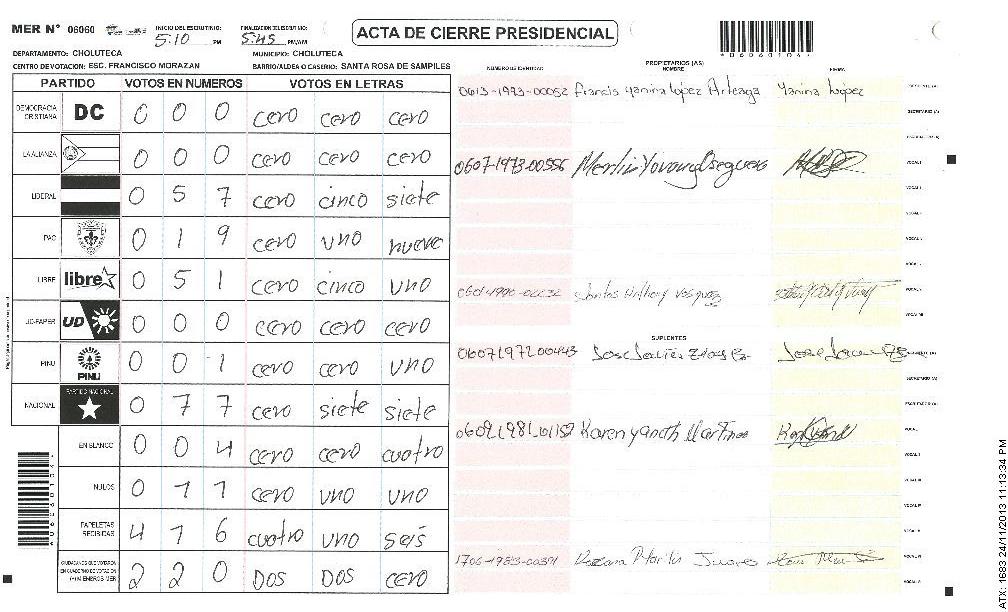 MER N° 06060 INICIO DEL ESCRUTINIO: 5:10 PM FINALIZACION DEL ESCRUTINIO: 5:45 PM/AM ACTA DE CIERRE PRESIDENCIAL
DEPARTAMENTO: CHOLUTECA MUNICIPIO: CHOLUTECA
CENTRO DE VOTACION: ESC. FRANCISCO MORAZAN BARRIO/ALDEA O CASERIO: SANTA ROSA DE SAMPILES
PARTIDO VOTOS EN NUMEROS VOTOS EN LETRAS
DEMOCRACIA CRISTIANA DC 0 0 0 cero cero cero
LA ALIANZA 0 0 0 cero cero cero
LIBERAL 0 5 7 cero cinco siete
PAC 0 1 9 cero uno nueve
LIBRE libre 0 5 1 cero cinco uno
UD-FAPER UD 0 0 0 cero cero cero
PINU PINU 0 0 1 cero cero uno
NACIONAL PARTIDO NACIONAL 0 7 7 cero siete siete
EN BLANCO 0 0 4 cero cero cuatro
NULOS 0 1 1 cero uno uno
PAPELETAS RECIBIDAS 4 1 6 cuatro uno seis
CIUDADANOS QUE VOTARON EN CUADERNO DE VOTACION (+) MIEMBROS MER 2 2 0 DOS DOS cero
NUMERO DE IDENTIDAD PROPIETARIOS (AS) NOMBRE FIRMA
0613-1993-00052 Francis Yanina Lopez Arteaga Yanina Lopez
0607-1973-00556 Merlin
VOCAL I
Santos Anthony
SUPLENTES
0607197200443 Jose Javier
0609198101152 Karen Yaneth Martinez
1706-1983-00391
ATX: 1683 24/11/2013 11:13:34 PM